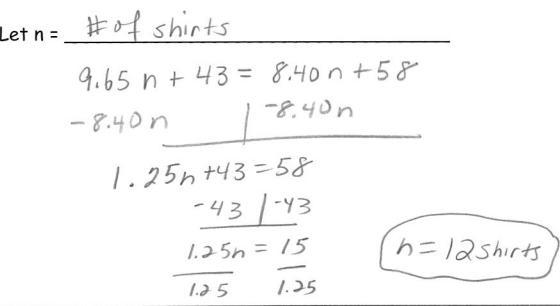 Let n = # of shirts
9.65n + 43 = 8.40n + 58
-8.40n | -8.40n
1.25n + 43 = 58
-43 | -43
1.25n = 15
1.25 1.25
n = 12 shirts